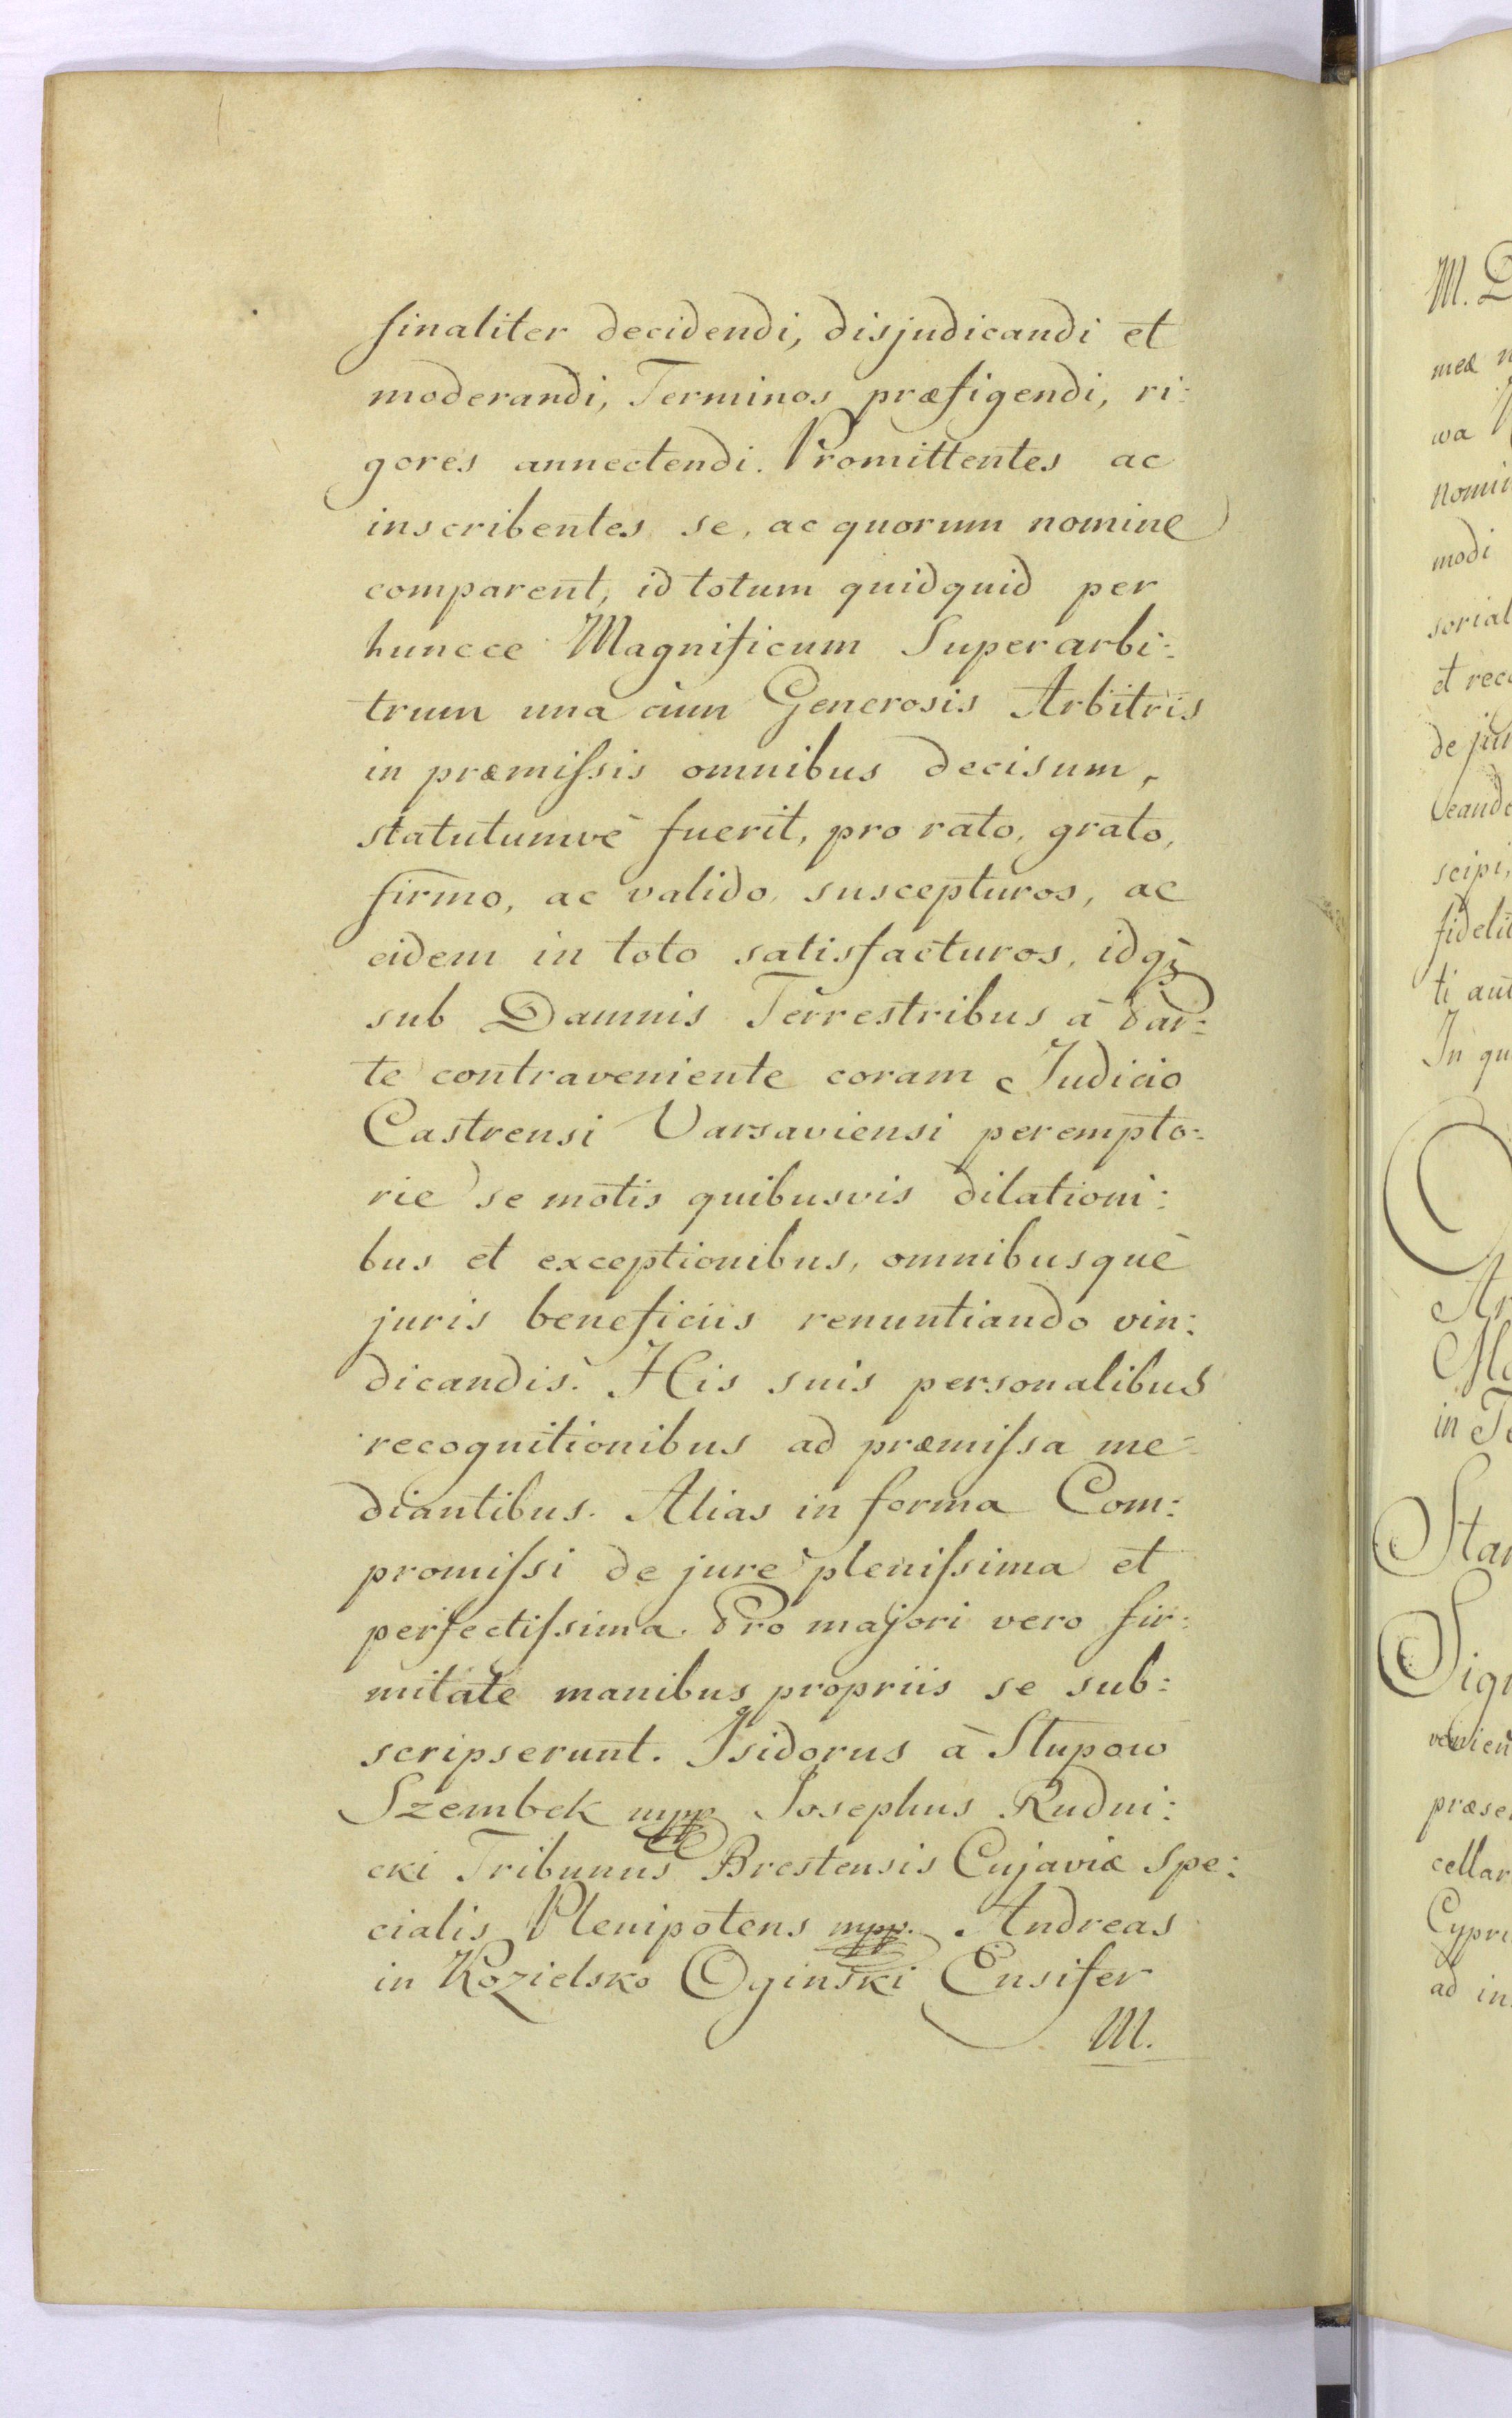 finaliter decidendi, disjudicandi et
moderandi, Terminos præfigendi, ri:
gores annectendi. Promittentes ac
inscribentes se, ac quorum nomine
comparent, id totum quidquid per
huncce Magnificum Superarbi:
trum una cum Generosis Arbitris
in præmiſsis omnibus decisum,
statutumvè fuerit, pro rato, grato,
firmo, ac valido, suscepturos, ac
eidem in toto satisfacturos, idqꝫ
sub Damnis Terrestribus à Par:
te contraveniente coram Judicio
Castrensi Varsaviensi perempto:
rie se motis quibusvis dilationi:
bus et exceptionibus, omnibusquè
juris beneficiis renuntiando vin:
dicandis. His suis personalibus
recognitionibus ad præmiſsa me:
diantibus. Alias in forma Com:
promiſsi de jure pleniſsima et
perfectiſsima. Pro majori vero fir:
mitate manibus propriis se sub:
scripserunt. Isidorus à Słupow
Szembek mpp Josephus Rudni:
cki Tribunus Brestensis Cujaviæ Spe:
cialis Plenipotens mpp. Andreas
in Kozielsko Oginski Ensifer
M.
M.
meæ
wa
modi
et
de
scipi,
ti
In
in
ad